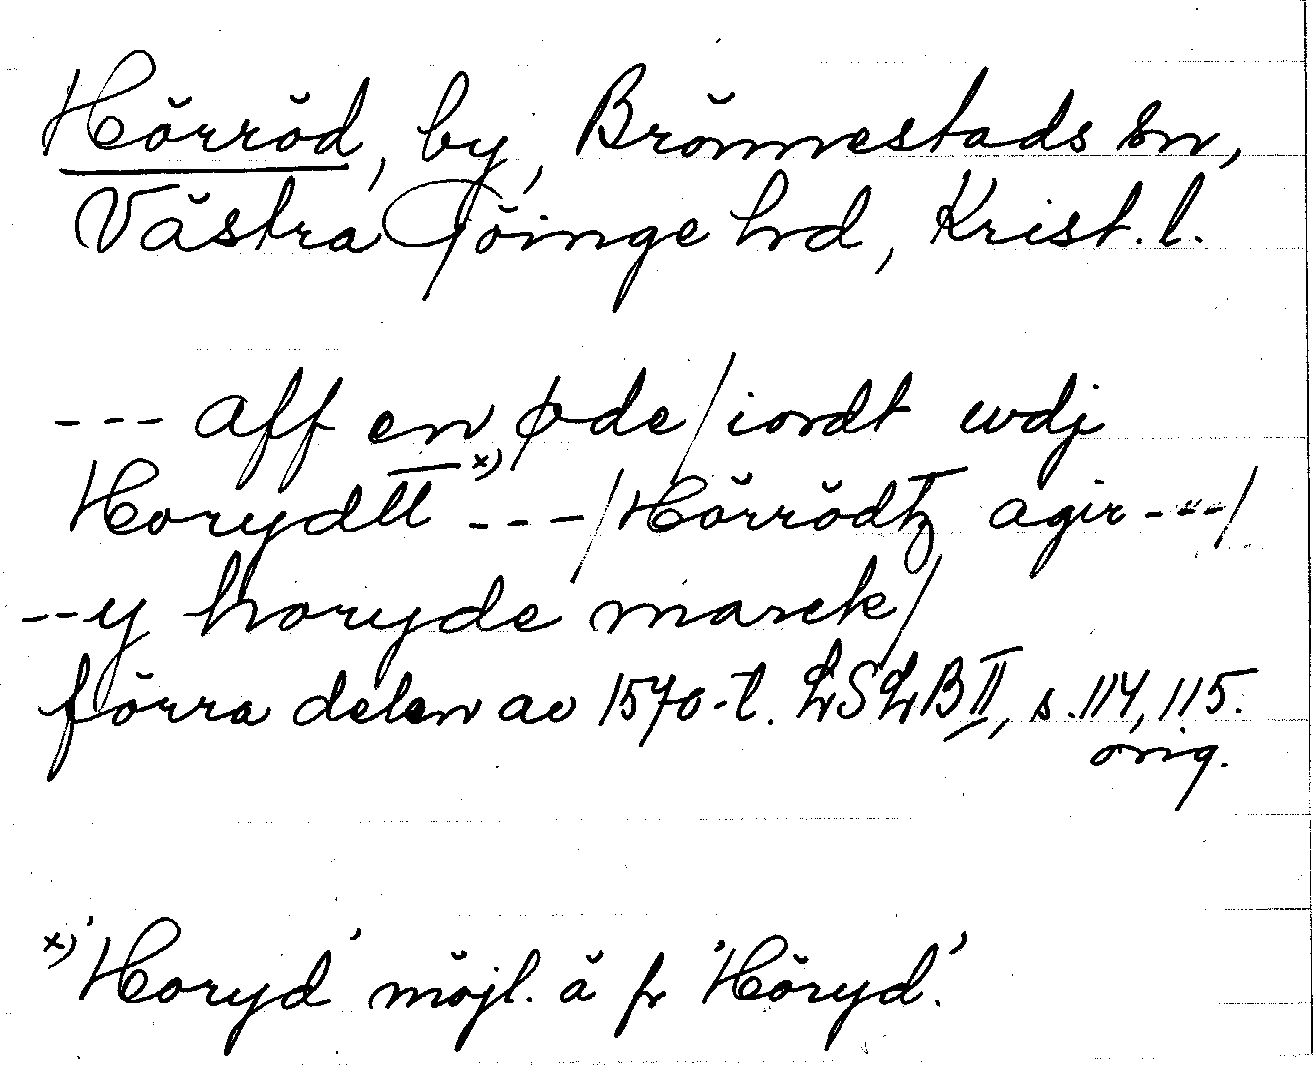 Hörröd, by, Brönnestads sn,
Västra Göinge hrd, Krist. l.
--- aff en øde / iordt wdj
Horydtt x) --- / Hörrödtz agir --- /
-- y horyde marck /
förra delen av 1570-t. LSLB II, s. 114, 115.
orig.
x) 'Horyd' möjl. ä fr 'Höryd'.